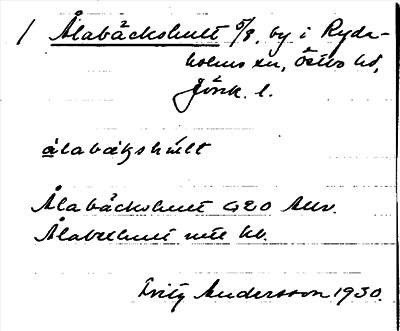 / Ålabäckshult 5/8, by i Ryde-
holms sn, Östbo hd,
Jönk. l.
ålabäkshúlt
Ålabäckshult GEO Allm.
Ålabeckhult
Fritz Andersson 1930.